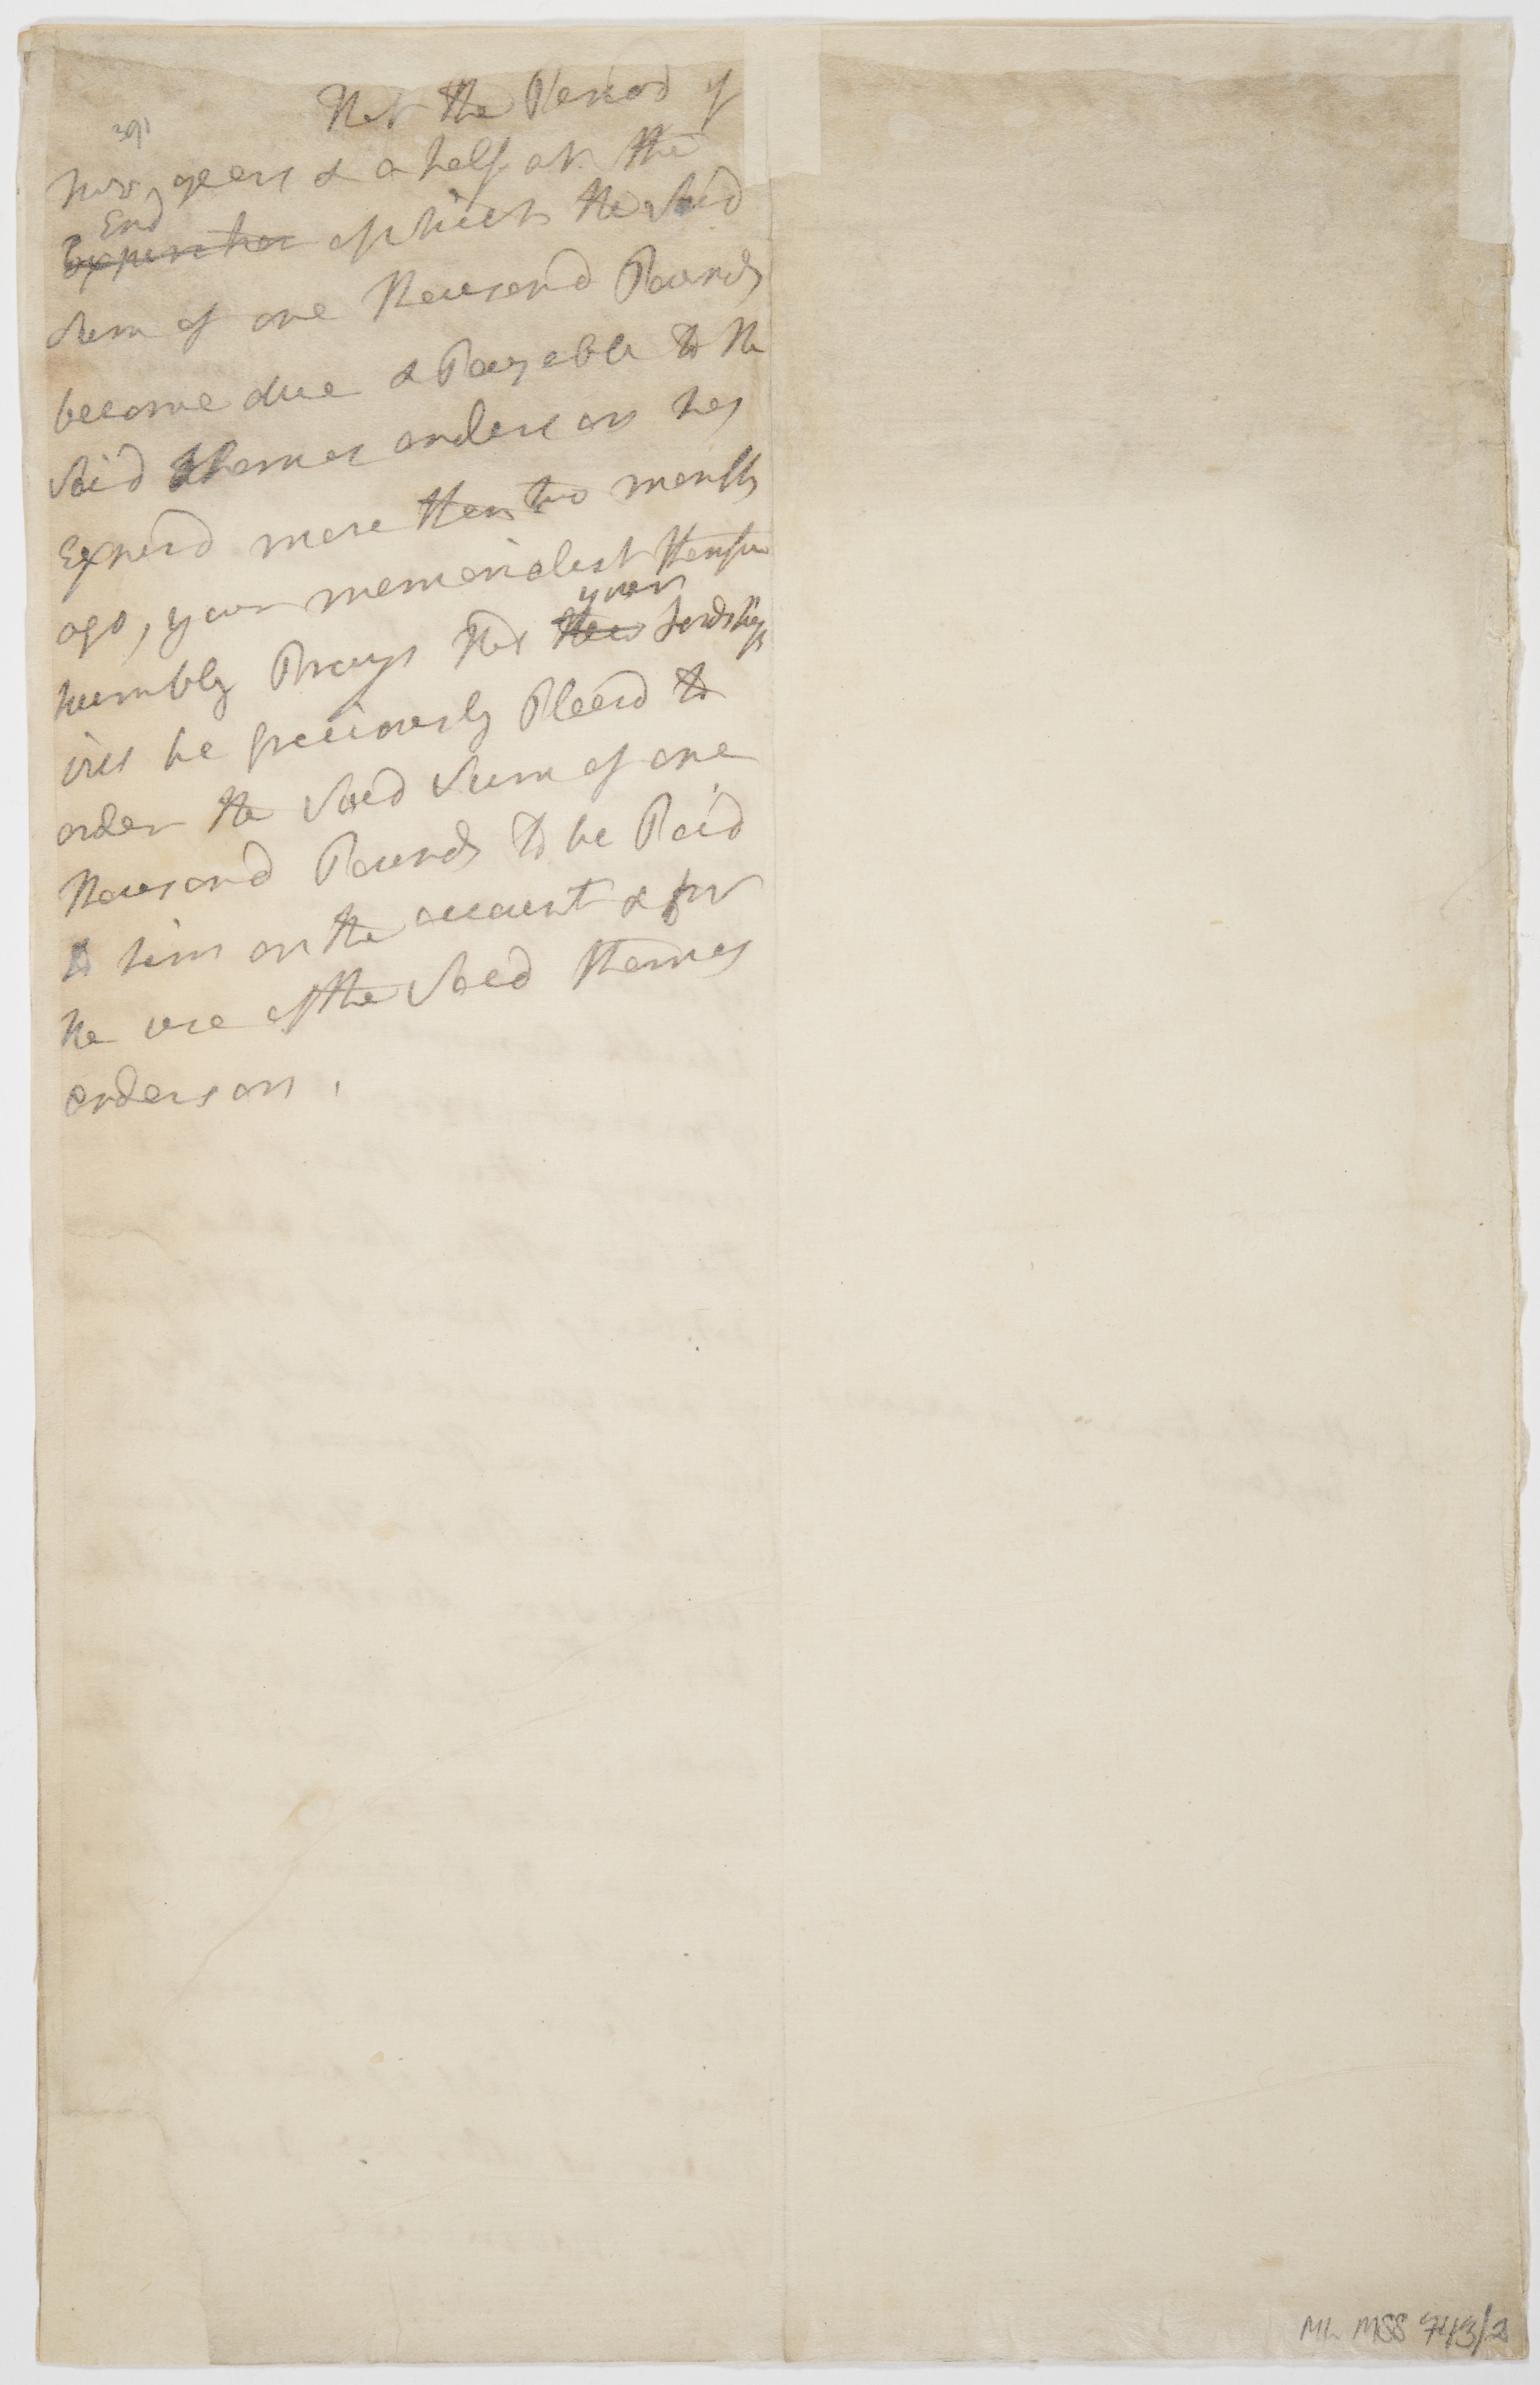 That the Period of
391
two years & a half at the
End
Expiration of which the said
Sum of one thousand Pounds
become due & Payable to the
said Thomas anderson has
Expird more than two months
ago, your memorialist therefore
your
humbly Prays that their Lordships
will be graciously Pleasd to
order the said Sum of one
thousand Pounds to be Paid
to him on the account & for
the use of the said Thomas
anderson.
ML MSS 743/2